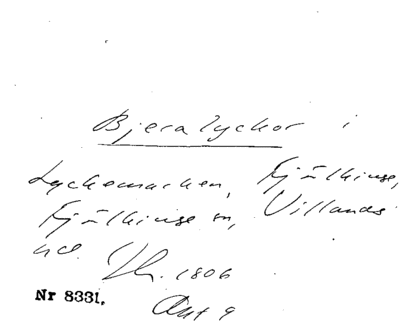 Bjeralyckor i
Lyckemarken, Fjälkinge,
Fjälkinge sn, Villands
hd. Sk. 1806
Nr 8331. Akt 9